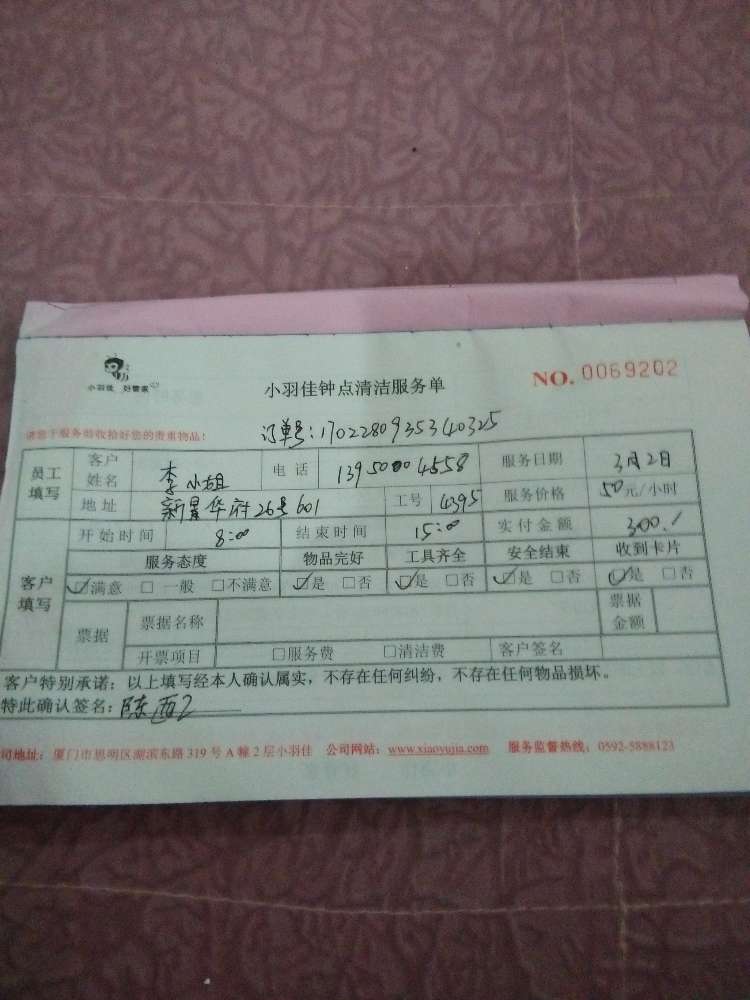 小羽佳 好管家
小羽佳钟点清洁服务单
NO. 0069202
订单号:17022809353340325
请您于服务前收拾好您的贵重物品!
员工填写 客户姓名 李小姐 电话 13950004558 服务日期 3月2日
地址 新景华府26号601 工号 4395 服务价格 50元/小时
客户填写 开始时间 8:00 结束时间 15:00 实付金额 300.
服务态度 物品完好 工具齐全 安全结束 收到卡片
☑满意 □一般 □不满意 ☑是 □否 ☑是 □否 ☑是 □否 ☑是 □否
票据 票据名称 票据金额
开票项目 □服务费 □清洁费 客户签名
客户特别承诺:以上填写经本人确认属实,不存在任何纠纷,不存在任何物品损坏。
特此确认签名:
司地址:厦门市思明区湖滨东路319号A幢2层小羽佳 公司网站:www.xiaoyujia.com 服务监督热线:0592-5888123